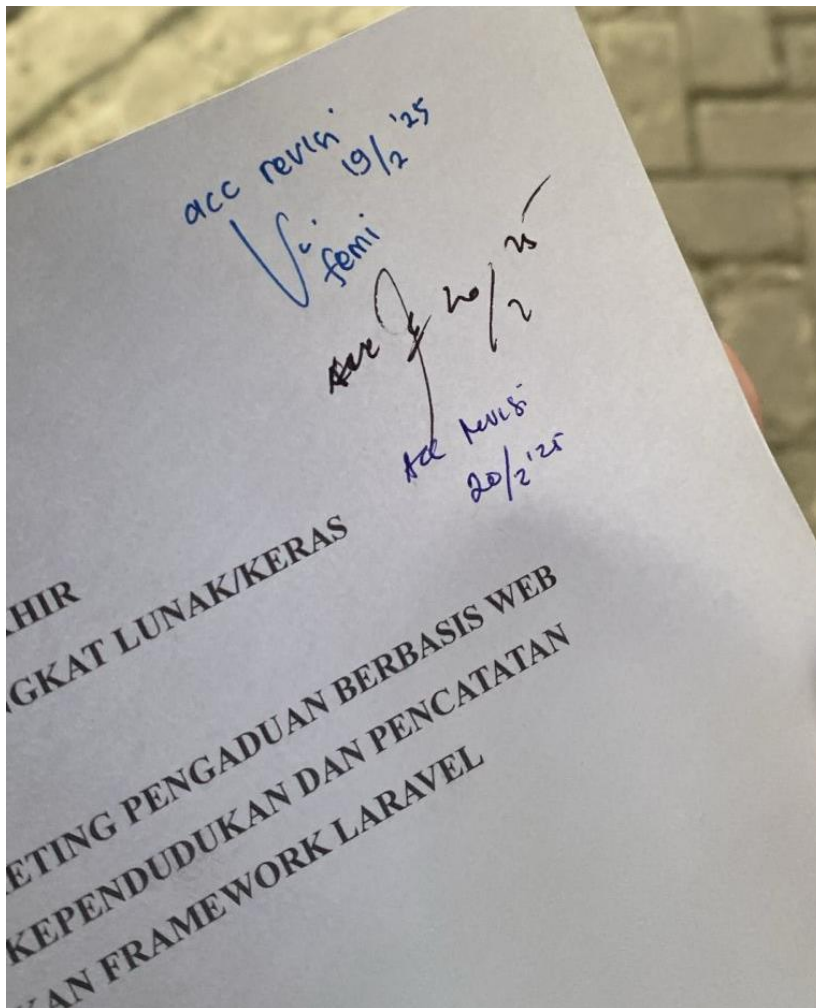 acc revisi
19/2 '25
femi
Acc 20/2 25
Acc revisi
20/2 '25
KHIR
GKAT LUNAK/KERAS
ETING PENGADUAN BERBASIS WEB
KEPENDUDUKAN DAN PENCATATAN
KAN FRAMEWORK LARAVEL